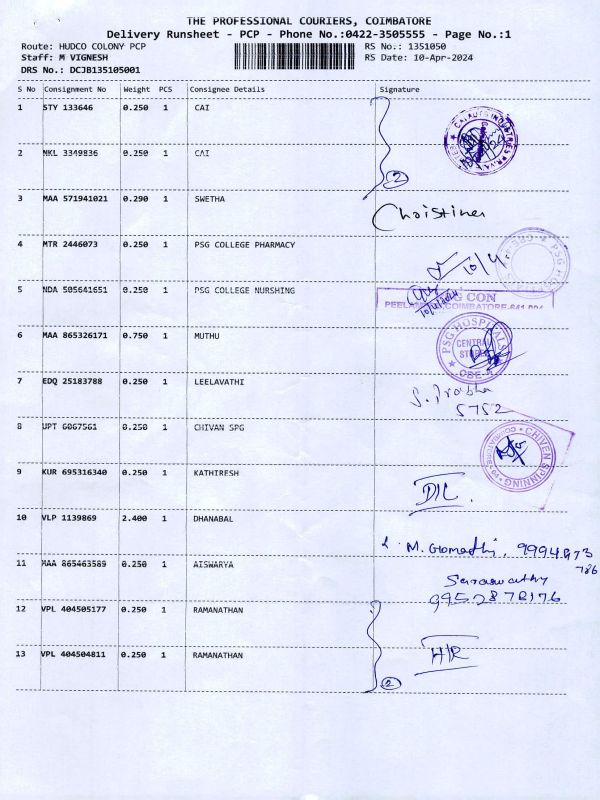 THE PROFESSIONAL COURIERS, COIMBATORE
Delivery Runsheet - PCP - Phone No.:0422-3505555 - Page No.:1
Route: HUDCO COLONY PCP RS No.: 1351050
Staff: M VIGNESH RS Date: 10-Apr-2024
DRS No.: DCJB135105001
S No Consignment No Weight PCS Consignee Details Signature
1 STY 133646 0.250 1 CAI
2 NKL 3349836 0.250 1 CAI
2
3 MAA 571941021 0.290 1 SWETHA
4 MTR 2446073 0.250 1 PSG COLLEGE PHARMACY
10/4
5 NDA 505641651 0.250 1 PSG COLLEGE NURSHING
10/4/2024
PEELAMEDU, COIMBATORE-641 004
6 MAA 865326171 0.750 1 MUTHU
PSG HOSPITALS
CENTRAL
STORES
CBE-4
7 EDQ 25183788 0.250 1 LEELAVATHI
S. Prabha
5752
8 UPT 6067561 0.250 1 CHIVAN SPG
CHIVEN SPINNING
9 KUR 695316340 0.250 1 KATHIRESH
D/L
10 VLP 1139869 2.400 1 DHANABAL
M. Gomathi, 9994973
786
11 MAA 865463589 0.250 1 AISWARYA
Saraswathy
9952878176
12 VPL 404505177 0.250 1 RAMANATHAN
H/R
13 VPL 404504811 0.250 1 RAMANATHAN
2